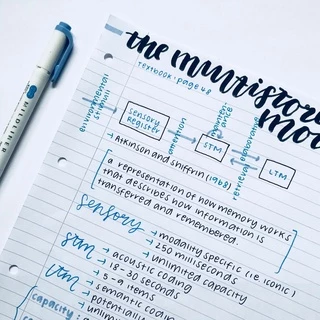 the multistore
mo
textbook: page 48
environmental
stimuli
sensory
register
attention
STM
elaborative
retrieval
LTM
→ Atkinson and Shiffrin (1968)
a representation of how memory works
that describes how information is
transferred and remembered.
sensory
→ modality specific (i.e. iconic)
→ 250 milliseconds
→ unlimited capacity
stm
→ acoustic coding
→ 18-30 seconds
→ 5-9 items
ltm
→ semantic coding
→ potentially
→ unlim
capacity: